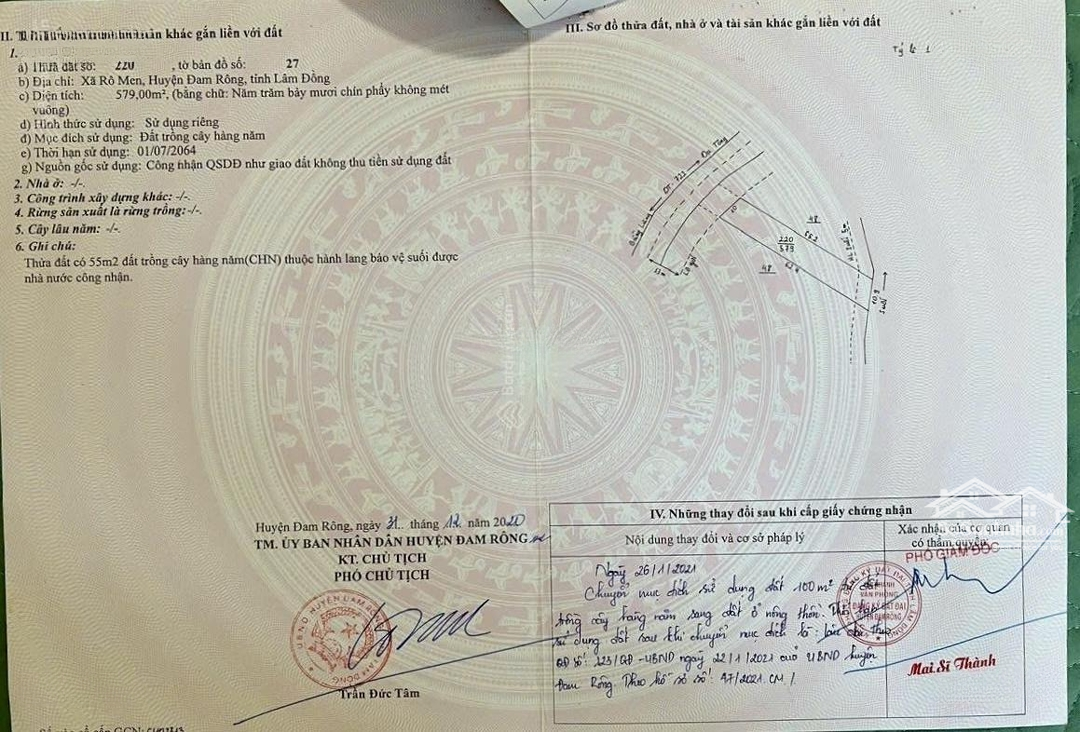 II. Thửa đất, nhà ở và tài sản khác gắn liền với đất
1.
a) Thửa đất số: 220 , tờ bản đồ số: 27
b) Địa chỉ: Xã Rô Men, Huyện Đam Rông, tỉnh Lâm Đồng
c) Diện tích: 579,00m², (bằng chữ: Năm trăm bảy mươi chín phẩy không mét
vuông)
d) Hình thức sử dụng: Sử dụng riêng
đ) Mục đích sử dụng: Đất trồng cây hàng năm
e) Thời hạn sử dụng: 01/07/2064
g) Nguồn gốc sử dụng: Công nhận QSDĐ như giao đất không thu tiền sử dụng đất
2. Nhà ở: -/-.
3. Công trình xây dựng khác: -/-.
4. Rừng sản xuất là rừng trồng:-/-.
5. Cây lâu năm: -/-.
6. Ghi chú:
Thửa đất có 55m2 đất trồng cây hàng năm(CHN) thuộc hành lang bảo vệ suối được
nhà nước công nhận.
Huyện Đam Rông, ngày 31 tháng 12 năm 2020
TM. ỦY BAN NHÂN DÂN HUYỆN ĐAM RÔNG
KT. CHỦ TỊCH
PHÓ CHỦ TỊCH
Trần Đức Tâm
III. Sơ đồ thửa đất, nhà ở và tài sản khác gắn liền với đất
Tỷ lệ 1
ĐT. 722
Lộ giới
13m
10
48
220
579
48
10.9
Suối
IV. Những thay đổi sau khi cấp giấy chứng nhận
Nội dung thay đổi và cơ sở pháp lý
Xác nhận của cơ quan
có thẩm quyền
PHÓ GIÁM ĐỐC
Ngày 26/1/2021
Chuyển mục đích sử dụng đất 100m² từ đất
trồng cây hàng năm sang đất ở nông thôn. Thời hạn
sử dụng đất sau khi chuyển mục đích là: lâu dài theo
QĐ số: 223/QĐ-UBND ngày 22/1/2021 của UBND huyện
Đam Rông. Theo hồ sơ số: 47/2021.CM/.
CHI NHÁNH
VĂN PHÒNG
ĐĂNG KÝ ĐẤT ĐAI
HUYỆN ĐAM RÔNG
Mai Sĩ Thành